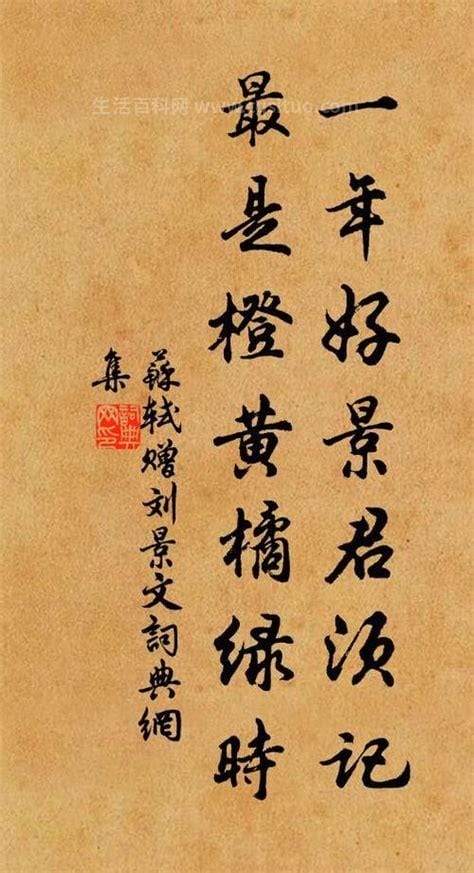 一年好景君须记
最是橙黄橘绿時
蘇轼赠刘景文詞典網
集
詞典網
生活百科网